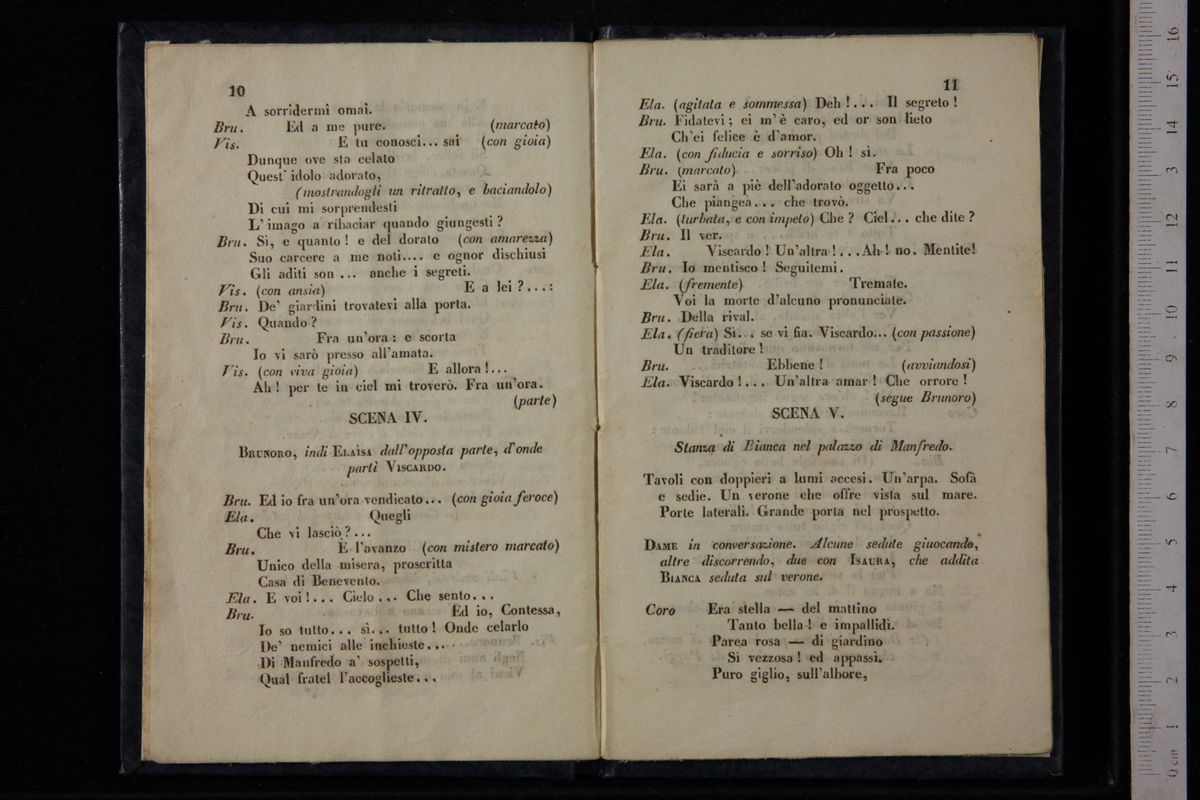 10
A sorridermi omai.
Bru. Ed a me pure. (marcato)
Vis. E tu conosci... sai (con gioia)
Dunque ove sta celato
Quest' idolo adorato,
(mostrandogli un ritratto, e baciandolo)
Di cui mi sorprendesti
L' imago a ribaciar quando giungesti ?
Bru. Sì, e quanto ! e del dorato (con amarezza)
Suo carcere a me noti.... e ognor dischiusi
Gli aditi son ... anche i segreti.
Vis. (con ansia) E a lei ?...:
Bru. De' giardini trovatevi alla porta.
Vis. Quando ?
Bru. Fra un'ora : e scorta
Io vi sarò presso all'amata.
Vis. (con viva gioia) E allora !...
Ah ! per te in ciel mi troverò. Fra un'ora.
(parte)
SCENA IV.
BRUNORO, indi ELAISA dall'opposta parte, d'onde
partì VISCARDO.
Bru. Ed io fra un'ora vendicato... (con gioia feroce)
Ela. Quegli
Che vi lasciò ?...
Bru. E l'avanzo (con mistero marcato)
Unico della misera, proscritta
Casa di Benevento.
Ela. E voi !... Cielo ... Che sento...
Bru. Ed io, Contessa,
Io so tutto... sì... tutto ! Onde celarlo
De' nemici alle inchieste...
Di Manfredo a' sospetti,
Qual fratel l'accoglieste...
11
Ela. (agitata e sommessa) Deh !... Il segreto !
Bru. Fidatevi ; ei m'è caro, ed or son lieto
Ch'ei felice è d'amor.
Ela. (con fiducia e sorriso) Oh ! sì.
Bru. (marcato) Fra poco
Ei sarà a piè dell'adorato oggetto...
Che piangea... che trovò.
Ela. (turbata, e con impeto) Che ? Ciel... che dite ?
Bru. Il ver.
Ela. Viscardo ! Un'altra !...Ah ! no. Mentite!
Bru. Io mentisco ! Seguitemi.
Ela. (fremente) Tremate.
Voi la morte d'alcuno pronunciate.
Bru. Della rival.
Ela. (fiera) Sì... se vi fia. Viscardo... (con passione)
Un traditore !
Bru. Ebbene ! (avviandosi)
Ela. Viscardo !... Un'altra amar ! Che orrore !
(segue Brunoro)
SCENA V.
Stanza di Bianca nel palazzo di Manfredo.
Tavoli con doppieri a lumi accesi. Un'arpa. Sofà
e sedie. Un verone che offre vista sul mare.
Porte laterali. Grande porta nel prospetto.
DAME in conversazione. Alcune sedute giuocando,
altre discorrendo, due con ISAURA, che addita
BIANCA seduta sul verone.
Coro Era stella — del mattino
Tanto bella ! e impallidì.
Parea rosa — di giardino
Sì vezzosa ! ed appassì.
Puro giglio, sull'albore,
0 cm 1 2 3 4 5 6 7 8 9 10 11 12 13 14 15 16